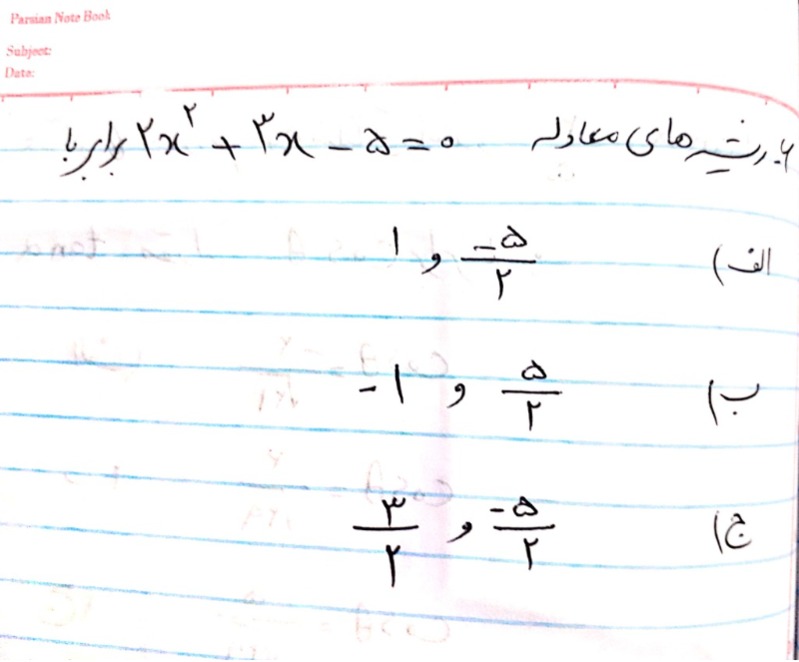 Parsian Note Book
Subject:
Date:
۶. ریشه های معادله ۲x² + ۳x − ۵ = ۰ برابر با
الف) −۵/۲ و ۱
ب) ۵/۲ و −۱
ج) −۵/۲ و ۳/۲